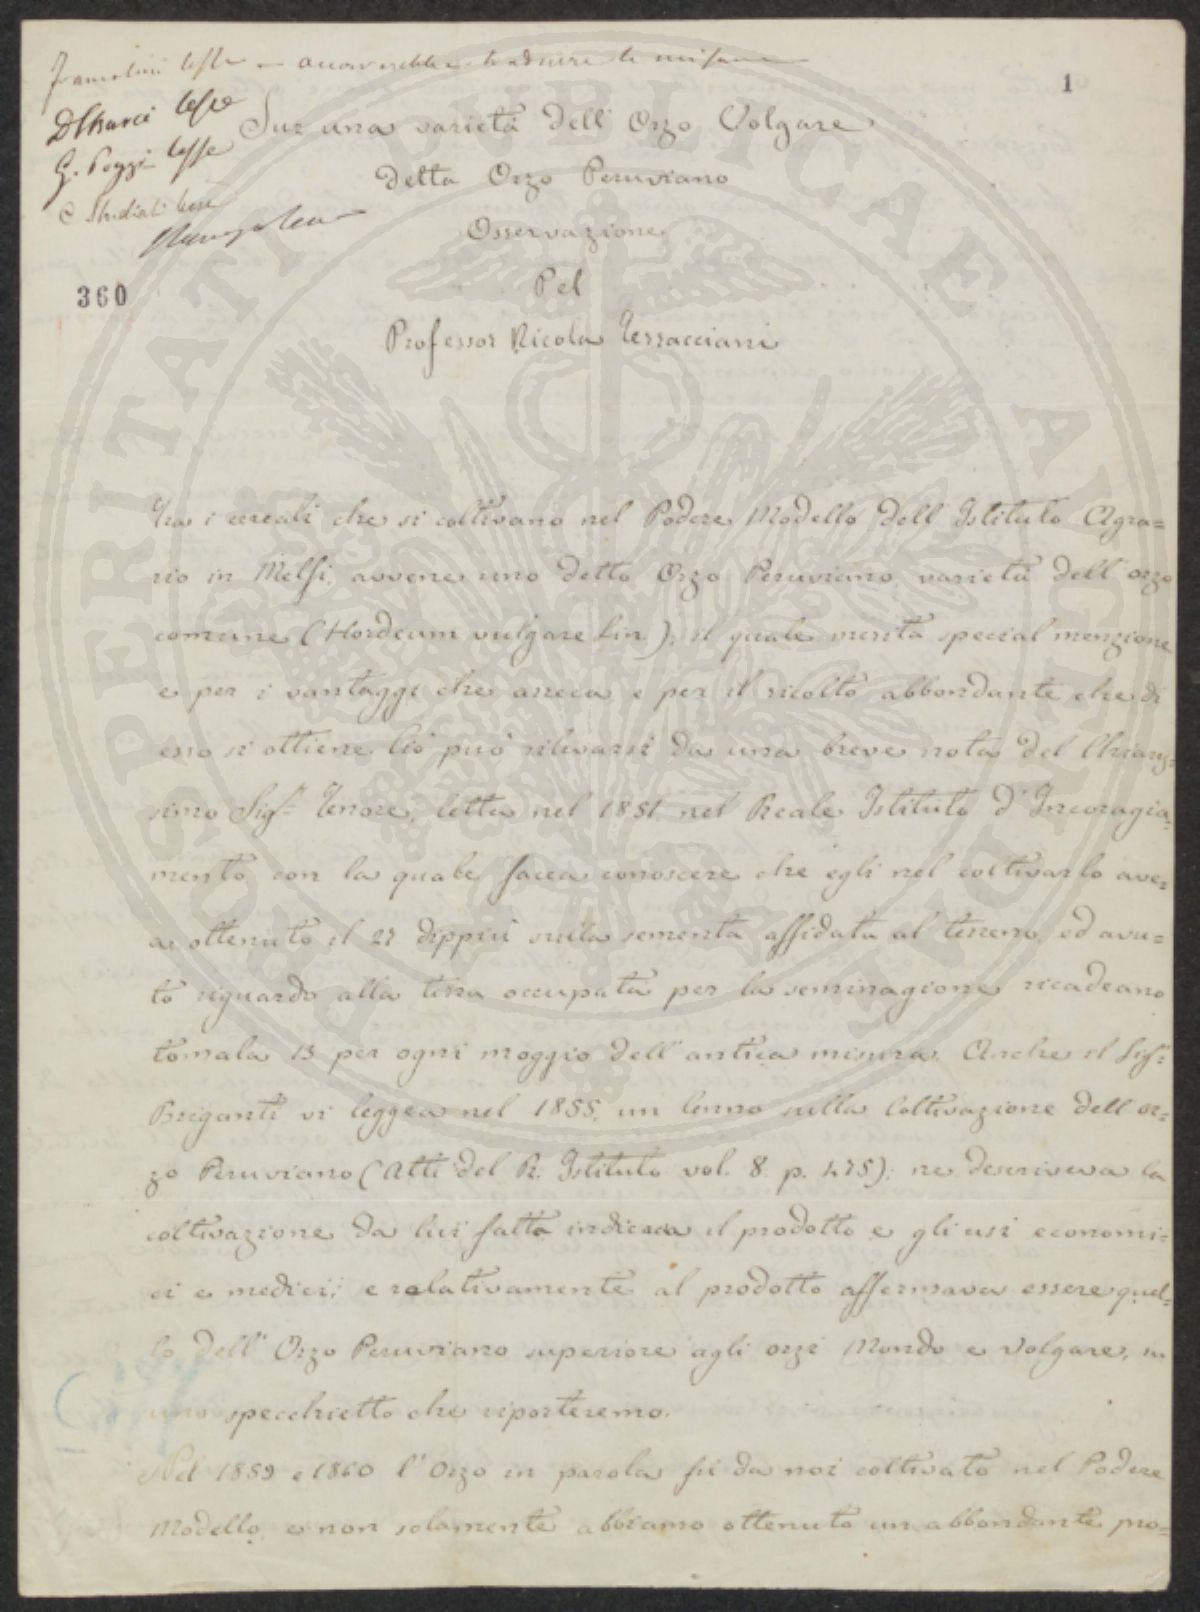 1
lesse — occorrerebbe tradurre le misure
lesse
Sur una varietà dell' Orzo Volgare
G. Poggi lesse
detta Orzo Peruviano
C. Studiati lesse
Osservazione
Pel
360
Professor Nicola Terracciani
Tra i cereali che si coltivano nel Podere Modello dell' Istituto Agra=
rio in Melfi, avvene uno detto Orzo Peruviano, varietà dell' orzo
comune (Hordeum vulgare Lin.); il quale merita special menzione
e per i vantaggi che arreca e per il ricolto abbondante che di
esso si ottiene. Ciò può rilevarsi da una breve nota del Chiaris=
simo Sigr Tenore, letta nel 1851 nel Reale Istituto d' Incoragia=
mento, con la quale facea conoscere che egli nel coltivarlo ave=
a ottenuto il 27 dippiù sulla sementa affidata al terreno, ed avu=
to riguardo alla terra occupata per la seminagione, ricadeano
tomala 13 per ogni moggio dell' antica misura. Anche il Sigr
Briganti vi leggea nel 1855, un Cenno sulla Coltivazione dell' or=
zo Peruviano (Atti del R. Istituto vol. 8. p. 475): ne descriveva la
coltivazione da lui fatta indicava il prodotto e gli usi economi=
ci e medici; e relativamente al prodotto affermava essere quel=
lo dell' Orzo Peruviano superiore agli orzi Mondo e Volgare, in
uno specchietto che riporteremo.
Nel 1859 e 1860 l' Orzo in parola fu da noi coltivato nel Podere
Modello, e non solamente abbiamo ottenuto un abbondante pro=
PROSPERITATI PUBLICAE AUGENDAE